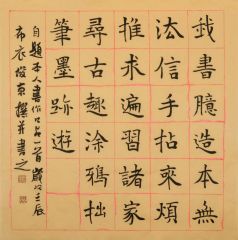 我書臆造本無
法信手拈來煩
推求遍習諸家
尋古趣塗鴉拙
筆墨跡遊
自題本人書作口占一首歲次壬辰
布衣俊撰并書之